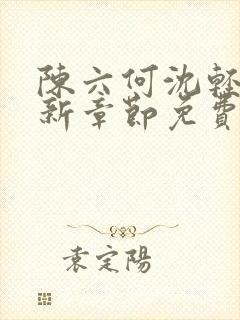 陳六何沈輕
新章節免費
袁定陽